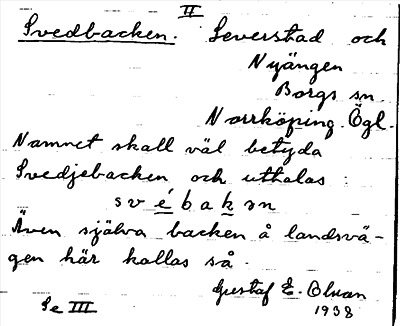 II
Svedbacken. Leverstad och
Nyängen
Borgs sn
Norrköping. Ögl.
Namnet skall väl betyda
Svedjebacken och uttalas :
svébakən
Även själva backen å landsvä-
gen här kallas så.
Gustaf E. Bluan
1938
Se III